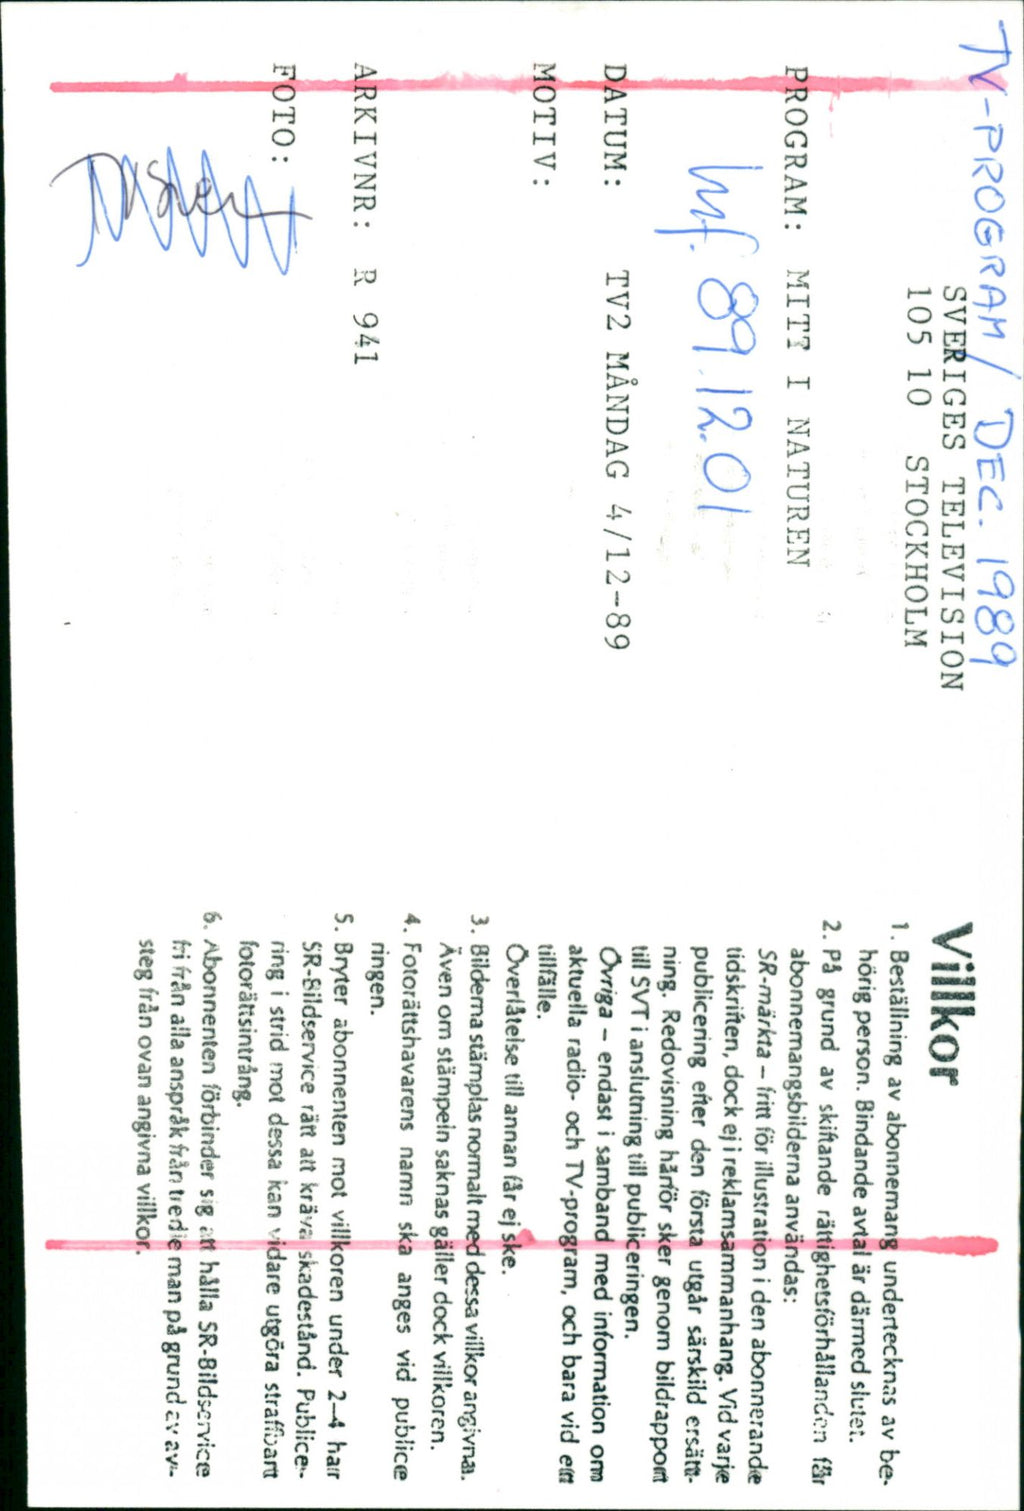 TV-PROGRAM / DEC. 1989
SVERIGES TELEVISION
105 10 STOCKHOLM
PROGRAM: MITT I NATUREN
89.12.01
DATUM: TV2 MÅNDAG 4/12-89
MOTIV:
ARKIVNR: R 941
FOTO:
Villkor
1. Beställning av abonnemang undertecknas av be-
hörig person. Bindande avtal är därmed slutet.
2. På grund av skiftande rättighetsförhållanden får
abonnemangsbilderna användas:
SR-märkta – fritt för illustration i den abonnerande
tidskriften, dock ej i reklamsammanhang. Vid varje
publicering efter den första utgår särskild ersätt-
ning. Redovisning härför sker genom bildrapport
till SVT i anslutning till publiceringen.
Övriga – endast i samband med information om
aktuella radio- och TV-program, och bara vid ett
tillfälle.
Överlåtelse till annan får ej ske.
3. Bilderna stämplas normalt med dessa villkor angivna.
Även om stämpeln saknas gäller dock villkoren.
4. Fotorättshavarens namn ska anges vid publice
ringen.
5. Bryter abonnenten mot villkoren under 2–4 har
SR-Bildservice rätt att kräva skadestånd. Publice-
ring i strid mot dessa kan vidare utgöra straffbart
fotorättsintrång.
6. Abonnenten förbinder sig att hålla SR-Bildservice
fri från alla anspråk från tredje man på grund av av-
steg från ovan angivna villkor.